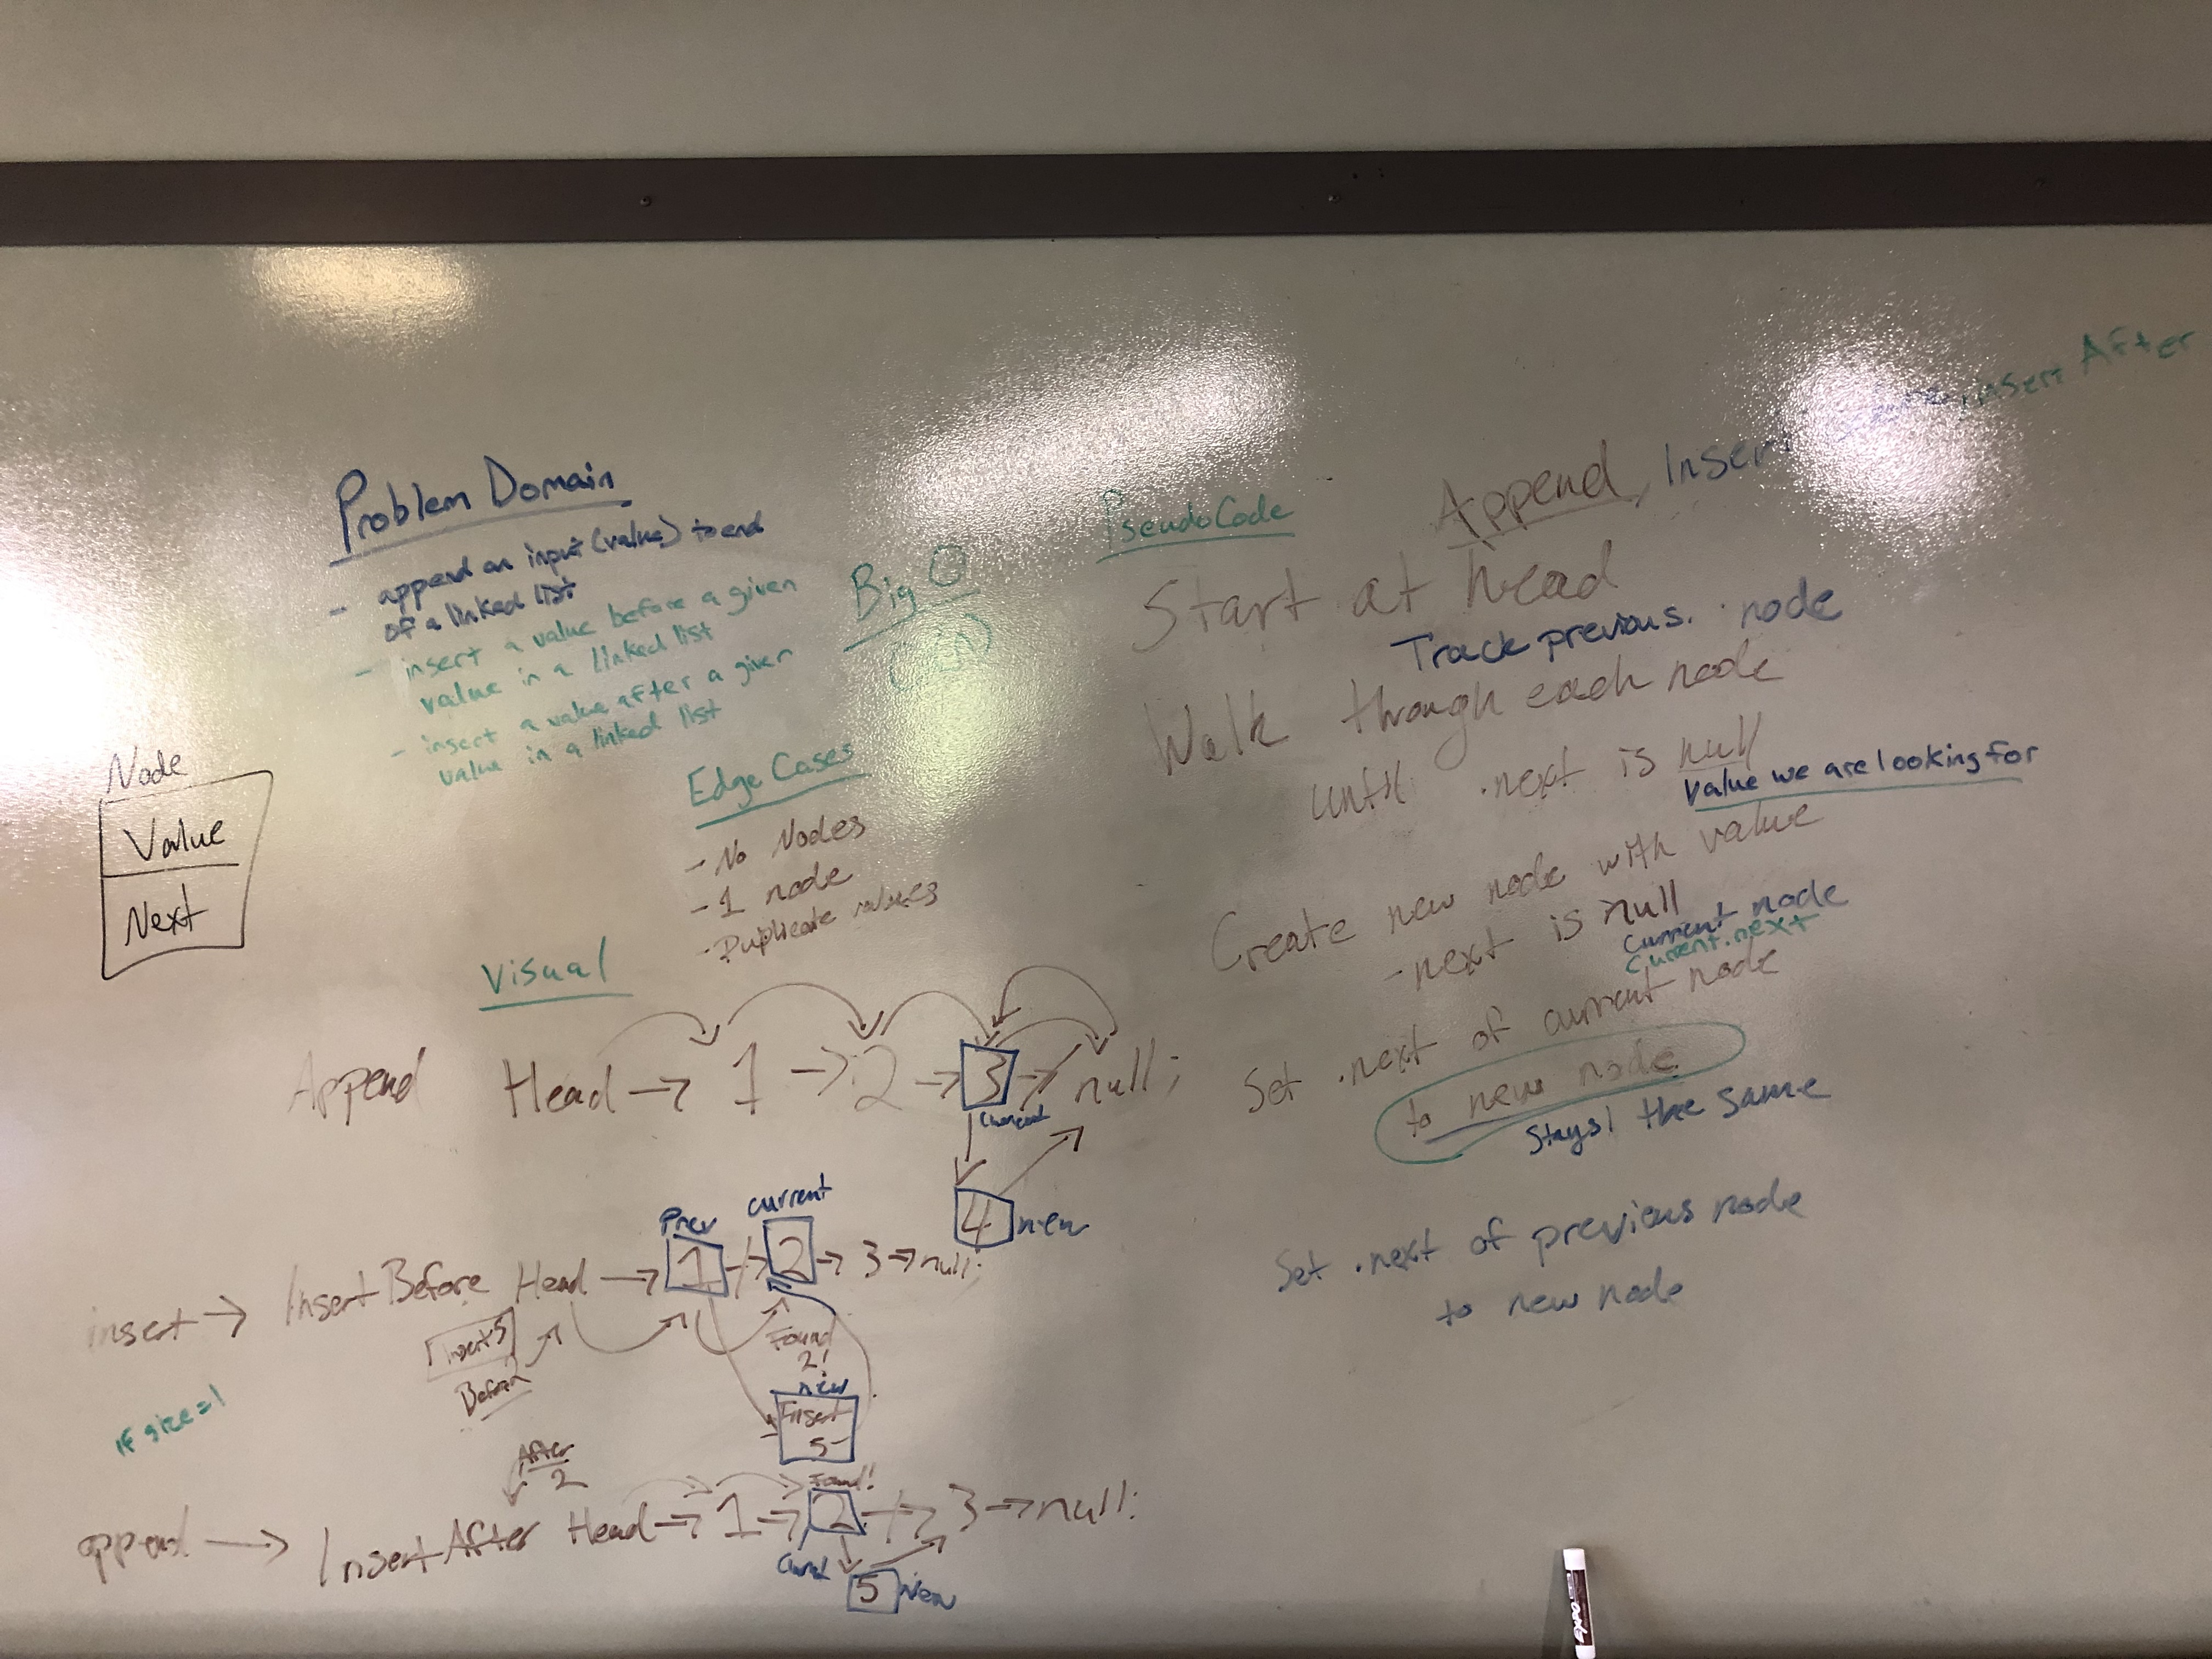 Problem Domain
- append an input (value) to end
of a linked list
- insert a value before a given
value in a linked list
- insert a value after a given
value in a linked list
Big O
Node
Value
Next
Edge Cases
- No Nodes
- 1 node
- Duplicate values
Visual
Append Head → 1 → 2 → 3 → null;
Current
4 new
Prev current
insert → Insert Before Head → 1 → 2 → 3 → null;
Insert 5
Before
Found
2!
new
Insert
5
if size = 1
After
2
Found!
append → Insert After Head → 1 → 2 → 3 → null;
5 New
PseudoCode
Append, Insert
insert After
Start at head
Track previous node
Walk through each node
until .next is null
Value we are looking for
Create new node with value
- next is null
Current node
Current.next
Set .next of current node
to new node
Stays the same
Set .next of previous node
to new node